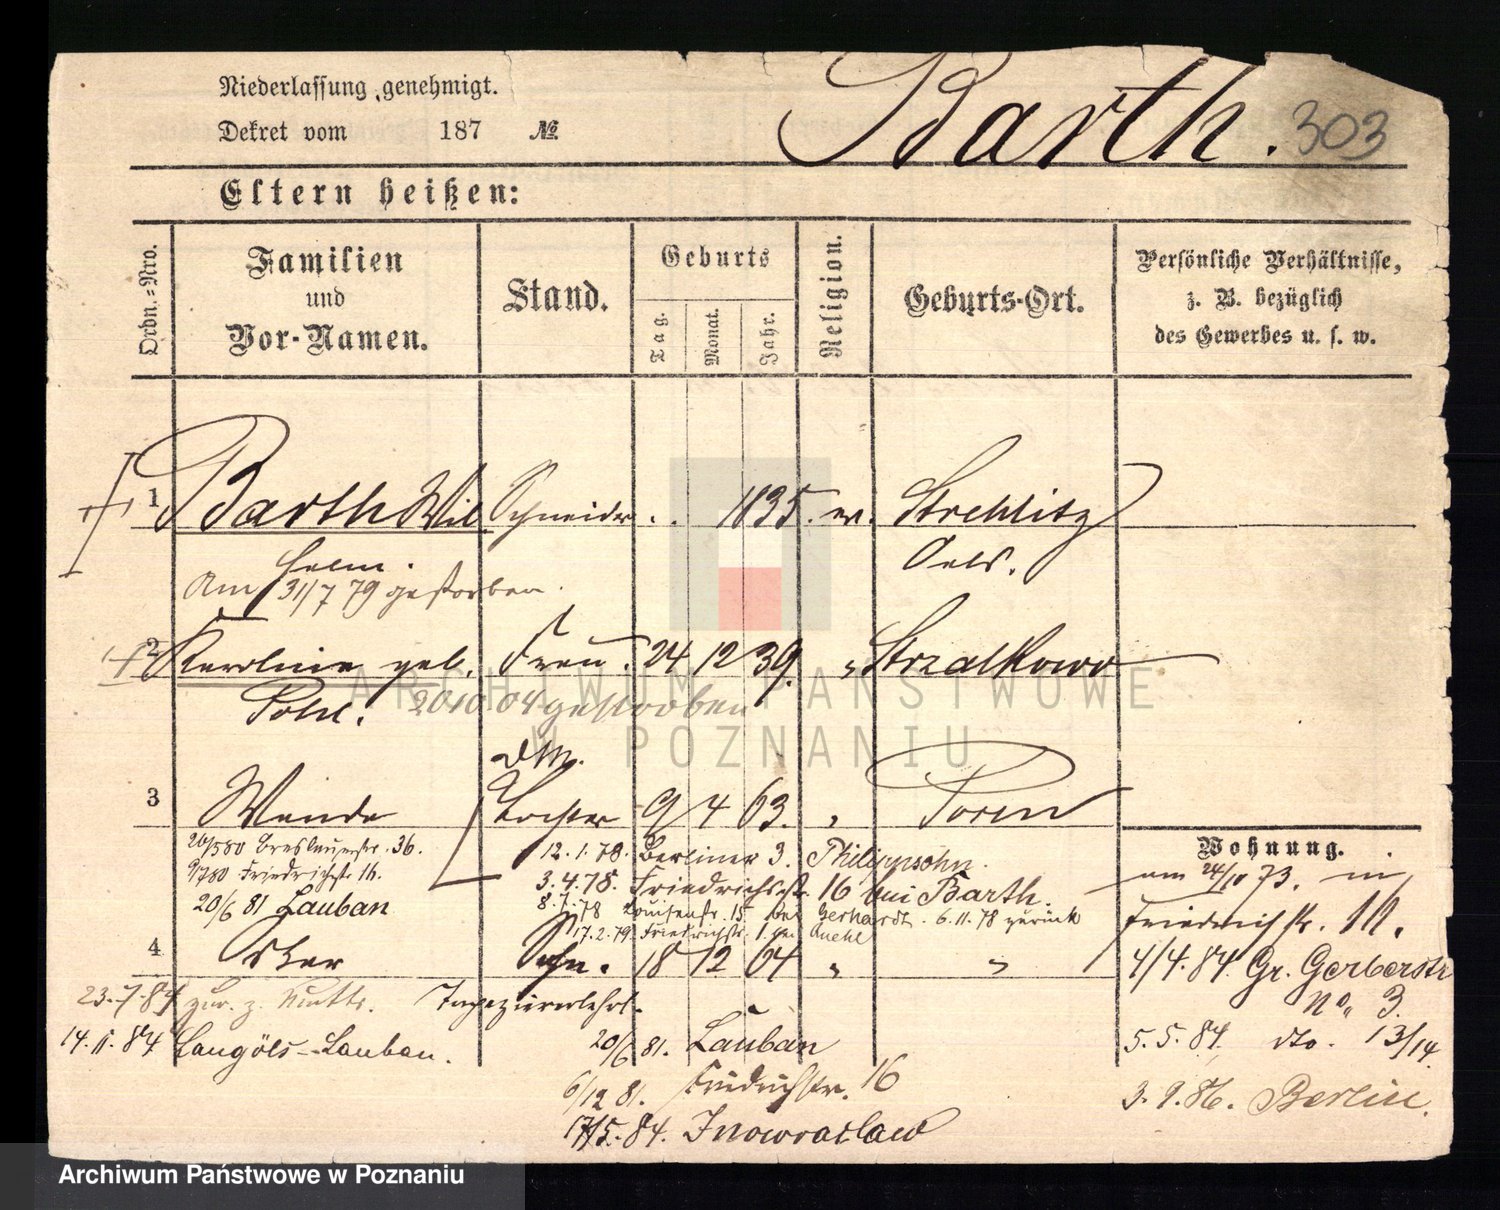 Niederlassung genehmigt.
Dekret vom 187 №
Barth. 303
Eltern heißen:
Ordn.-Nro.
Familien und Vor-Namen.
Stand.
Geburts
Tag. Monat. Jahr.
Religion.
Geburts-Ort.
Persönliche Verhältnisse,
z. B. bezüglich
des Gewerbes u. s. w.
1 Barth Wil Schneider . . 1835. ev. Strehlitz
helm. Oels.
Am 31/7 79 gestorben.
2 Karoline geb. Frau. 24 12 39. " Strzalkowo
Pohl. 20 10 04 gestorben
3 Wanda Tochter 9 4 63. " Posen
Wohnung.
20/5 80 Breslauerstr. 36. 12.1.78. Berliner 3. Philippsohn. am 24/10 73. in
9/7 80 Friedrichstr. 16. 3.4.78. Friedrichstr. 16 bei Barth. Friedrichstr. 16.
20/6 81 Lauban 8.7.78 Louisenstr. 15 bei Gerhardt. 6.11.78 zurück
17.2.79. Friedrichstr. 1. bei
4 Oskar Sohn. 18 12 64 " " 4/4.84. Gr. Gerberstr
No. 3.
23.7.84 zur. z. Mutter. Tapeziererlehrl.
14.11.84 Langöls-Lauban. 20/6 81. Lauban 5.5.84. dto. 13/14.
6/12 81. Friedrichstr. 16
17/5.84. Inowraclaw 3.9.86. Berlin.
ARCHIWUM PAŃSTWOWE
W POZNANIU
Archiwum Państwowe w Poznaniu